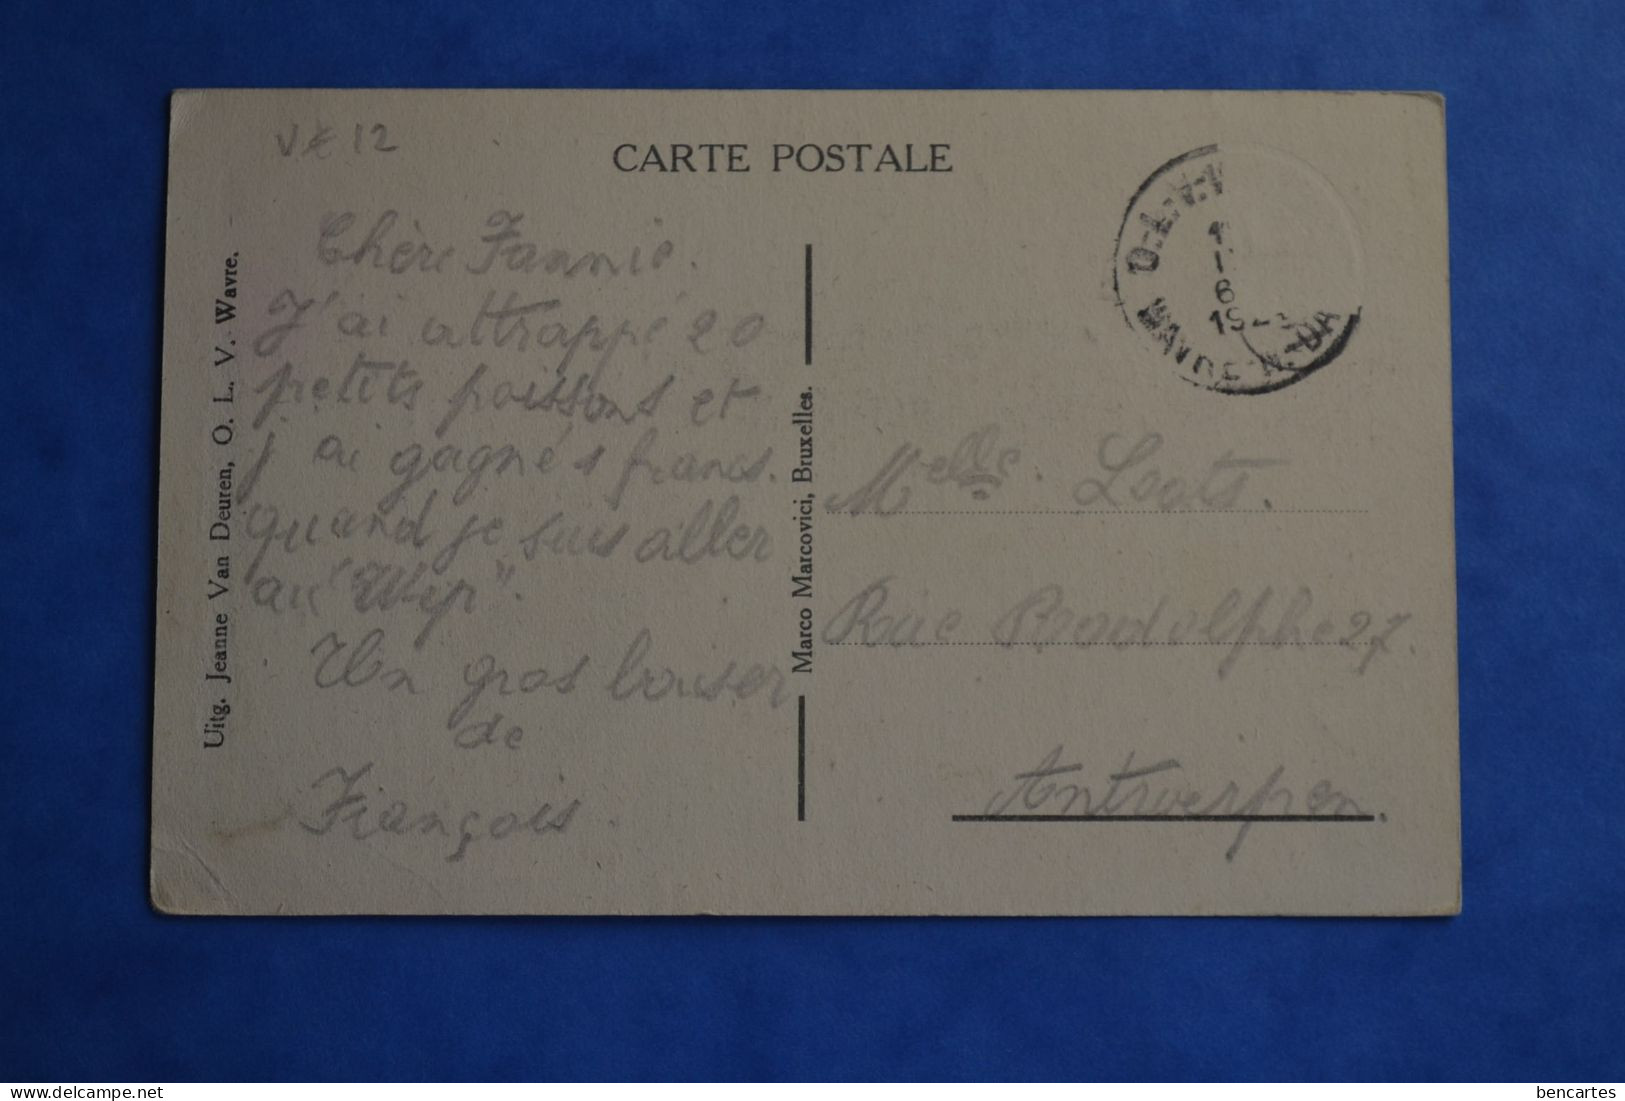 V€ 12
CARTE POSTALE
Uitg. Jeanne Van Deuren, O. L. V. Wavre.
Chère Fannie.
J'ai attrappé 20
petits poissons et
j'ai gagné 1 francs.
quand je suis aller
au "Wip".
Un gros baiser
de
François.
Marco Marcovici, Bruxelles.
O.-L.-V.-W
6
WAVRE-N.-DA
Melle. Loots.
Rue Rodolphe 27.
Antwerpen.
bencartes